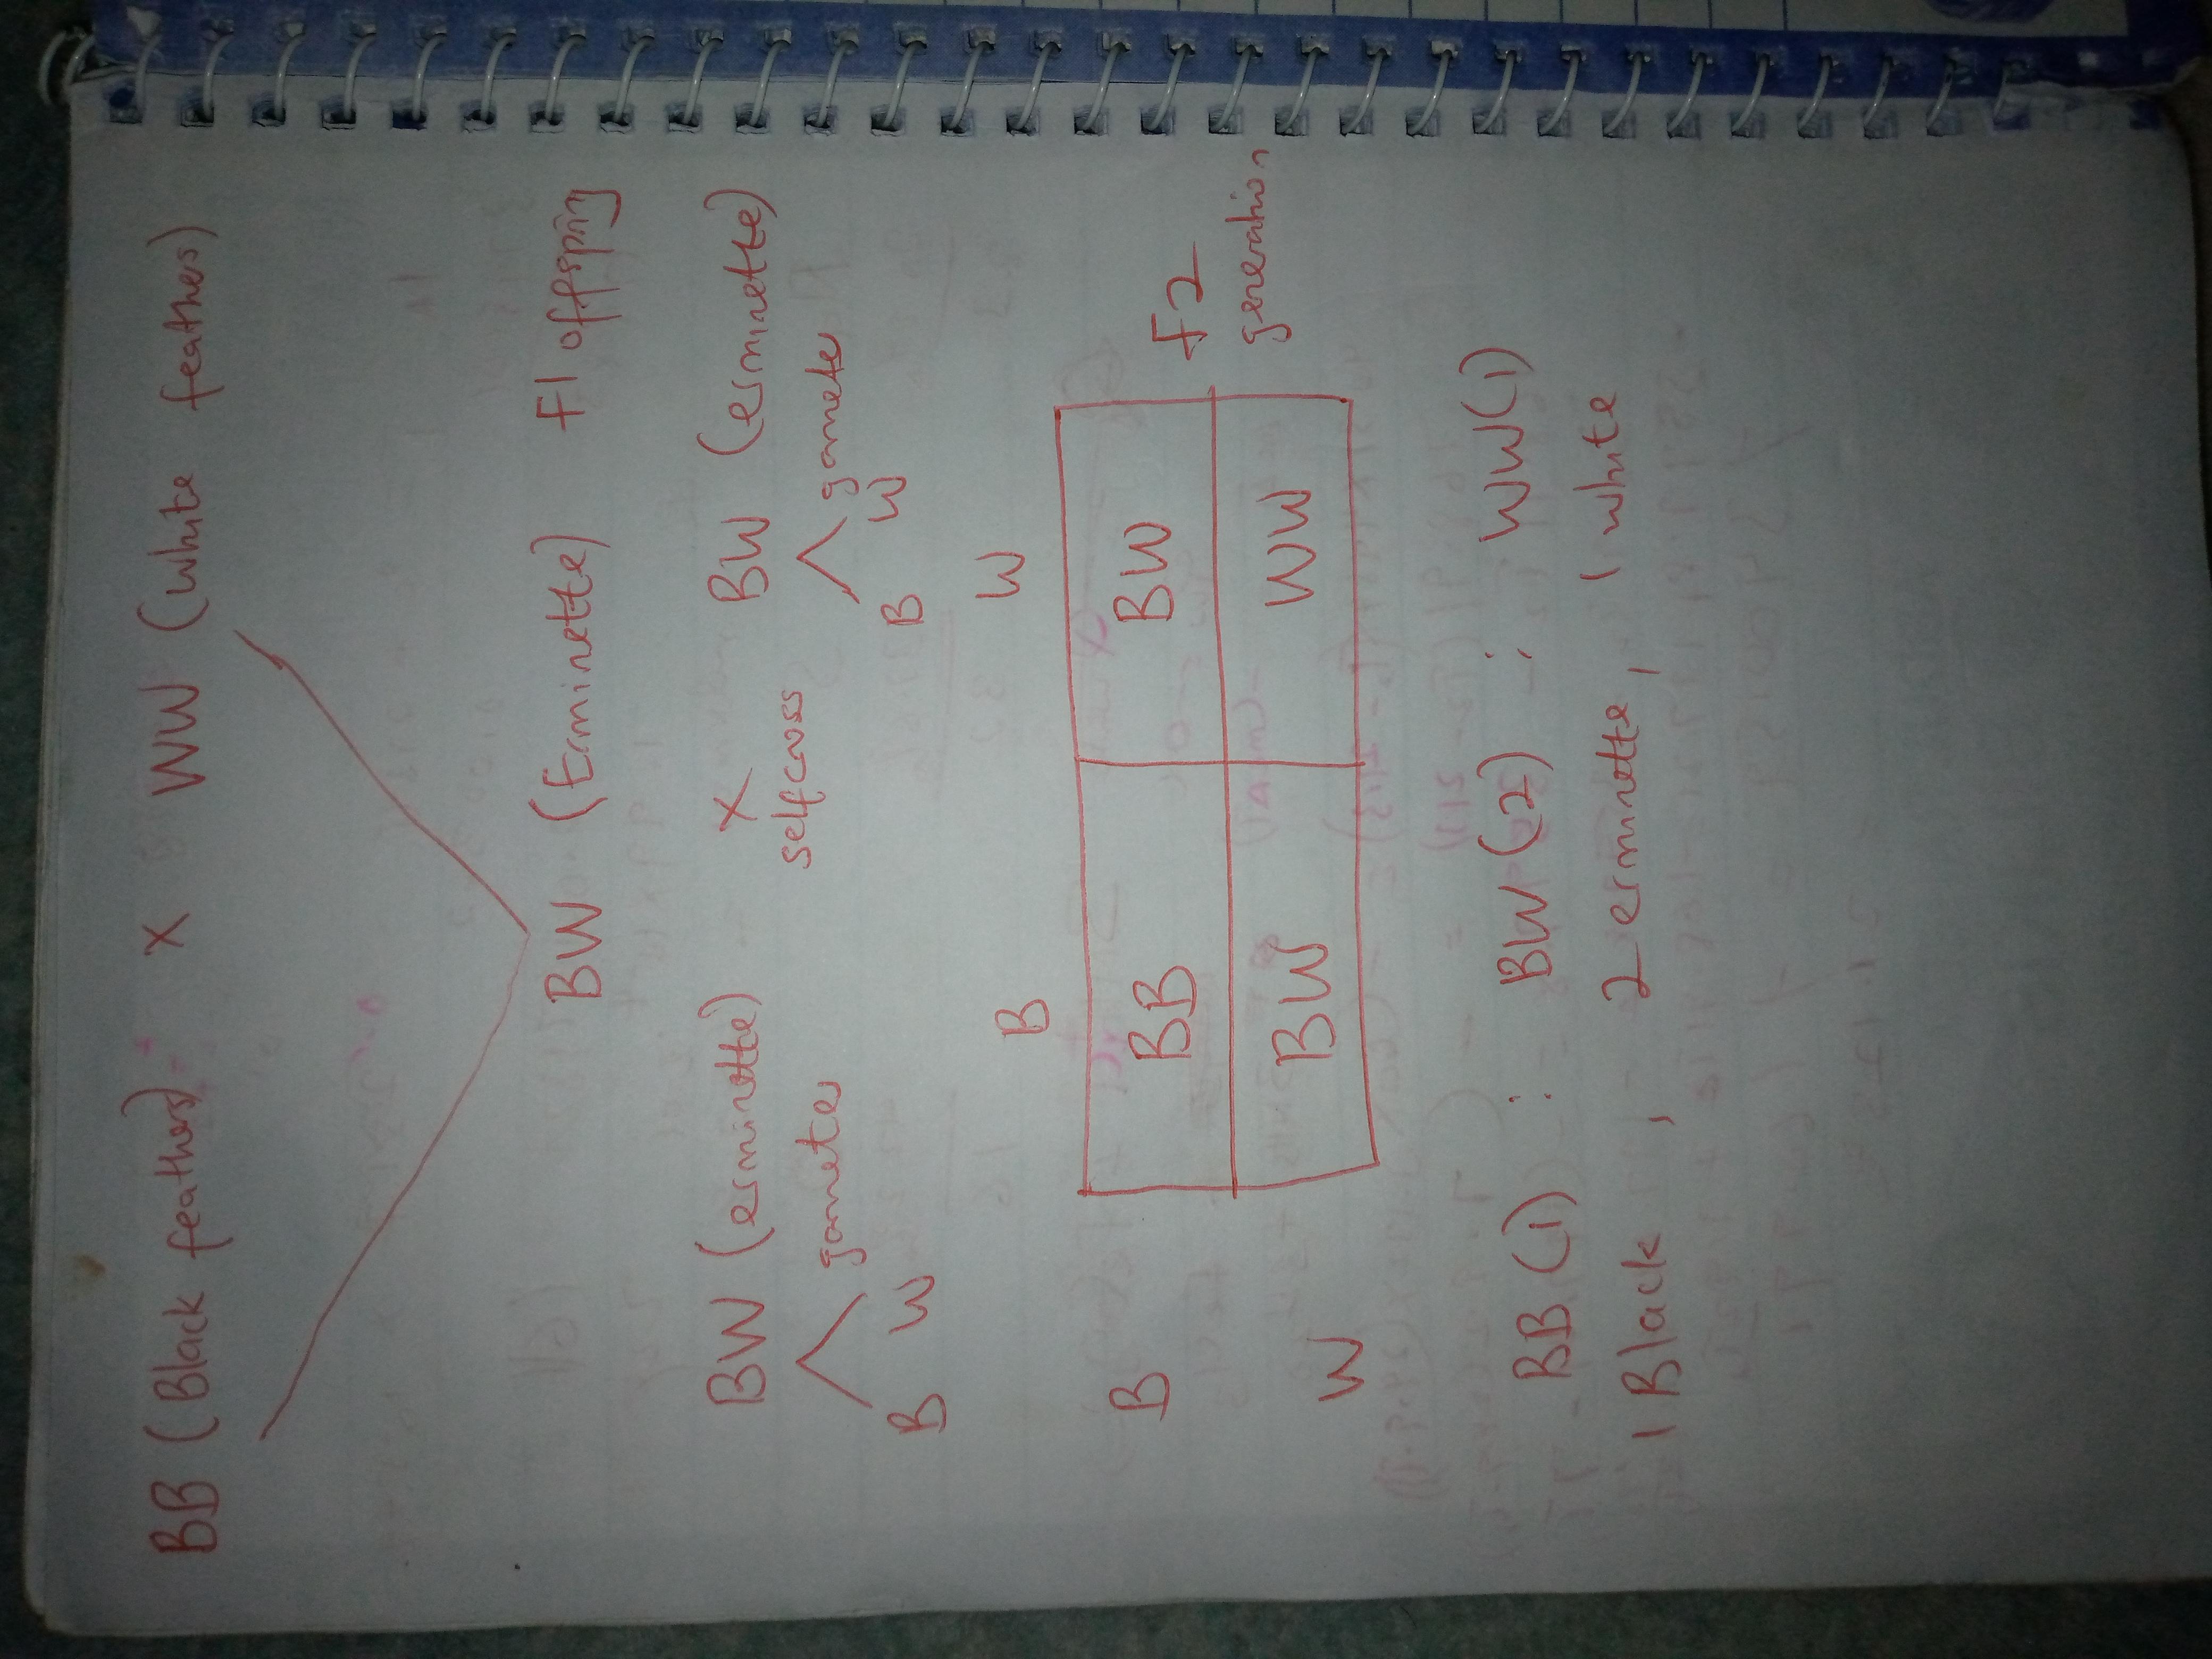 BB (Black feathers) X WW (White feathers)
BW (Erminette) F1 offspring
BW (erminette) X BW (erminette)
selfcross
gametes gamete
B W B W
B W
B BB BW F2
generation
W BW WW
BB (1) : BW (2) : WW (1)
1 Black , 2 erminette, 1 white